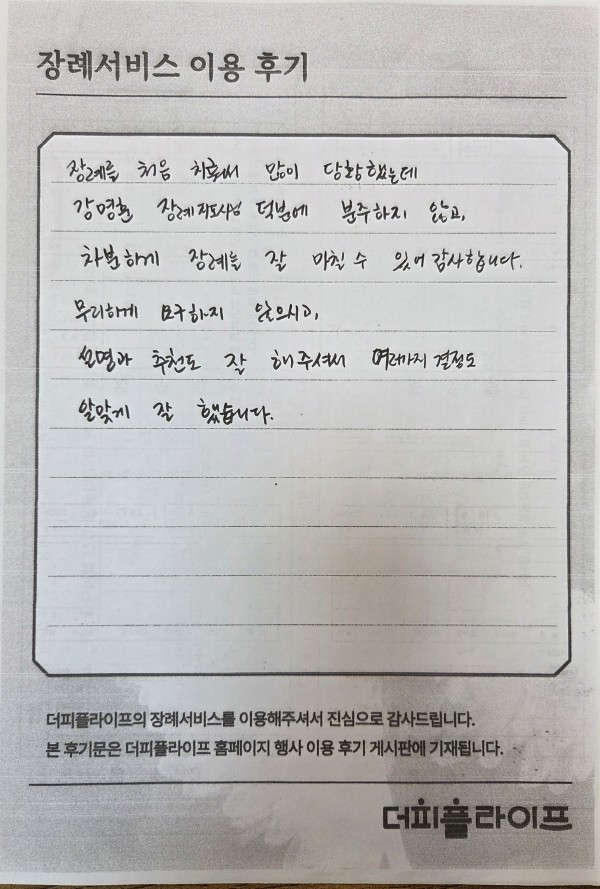 장례서비스 이용 후기
장례를 처음 치뤄봐서 많이 당황했는데
강명훈 장례지도사님 덕분에 분주하지 않고,
차분하게 장례를 잘 마칠 수 있어 감사합니다.
무리하게 요구하지 않으시고,
설명과 추천도 잘 해주셔서 여러가지 결정도
알맞게 잘 했습니다.
더피플라이프의 장례서비스를 이용해주셔서 진심으로 감사드립니다.
본 후기문은 더피플라이프 홈페이지 행사 이용 후기 게시판에 기재됩니다.
더피플라이프